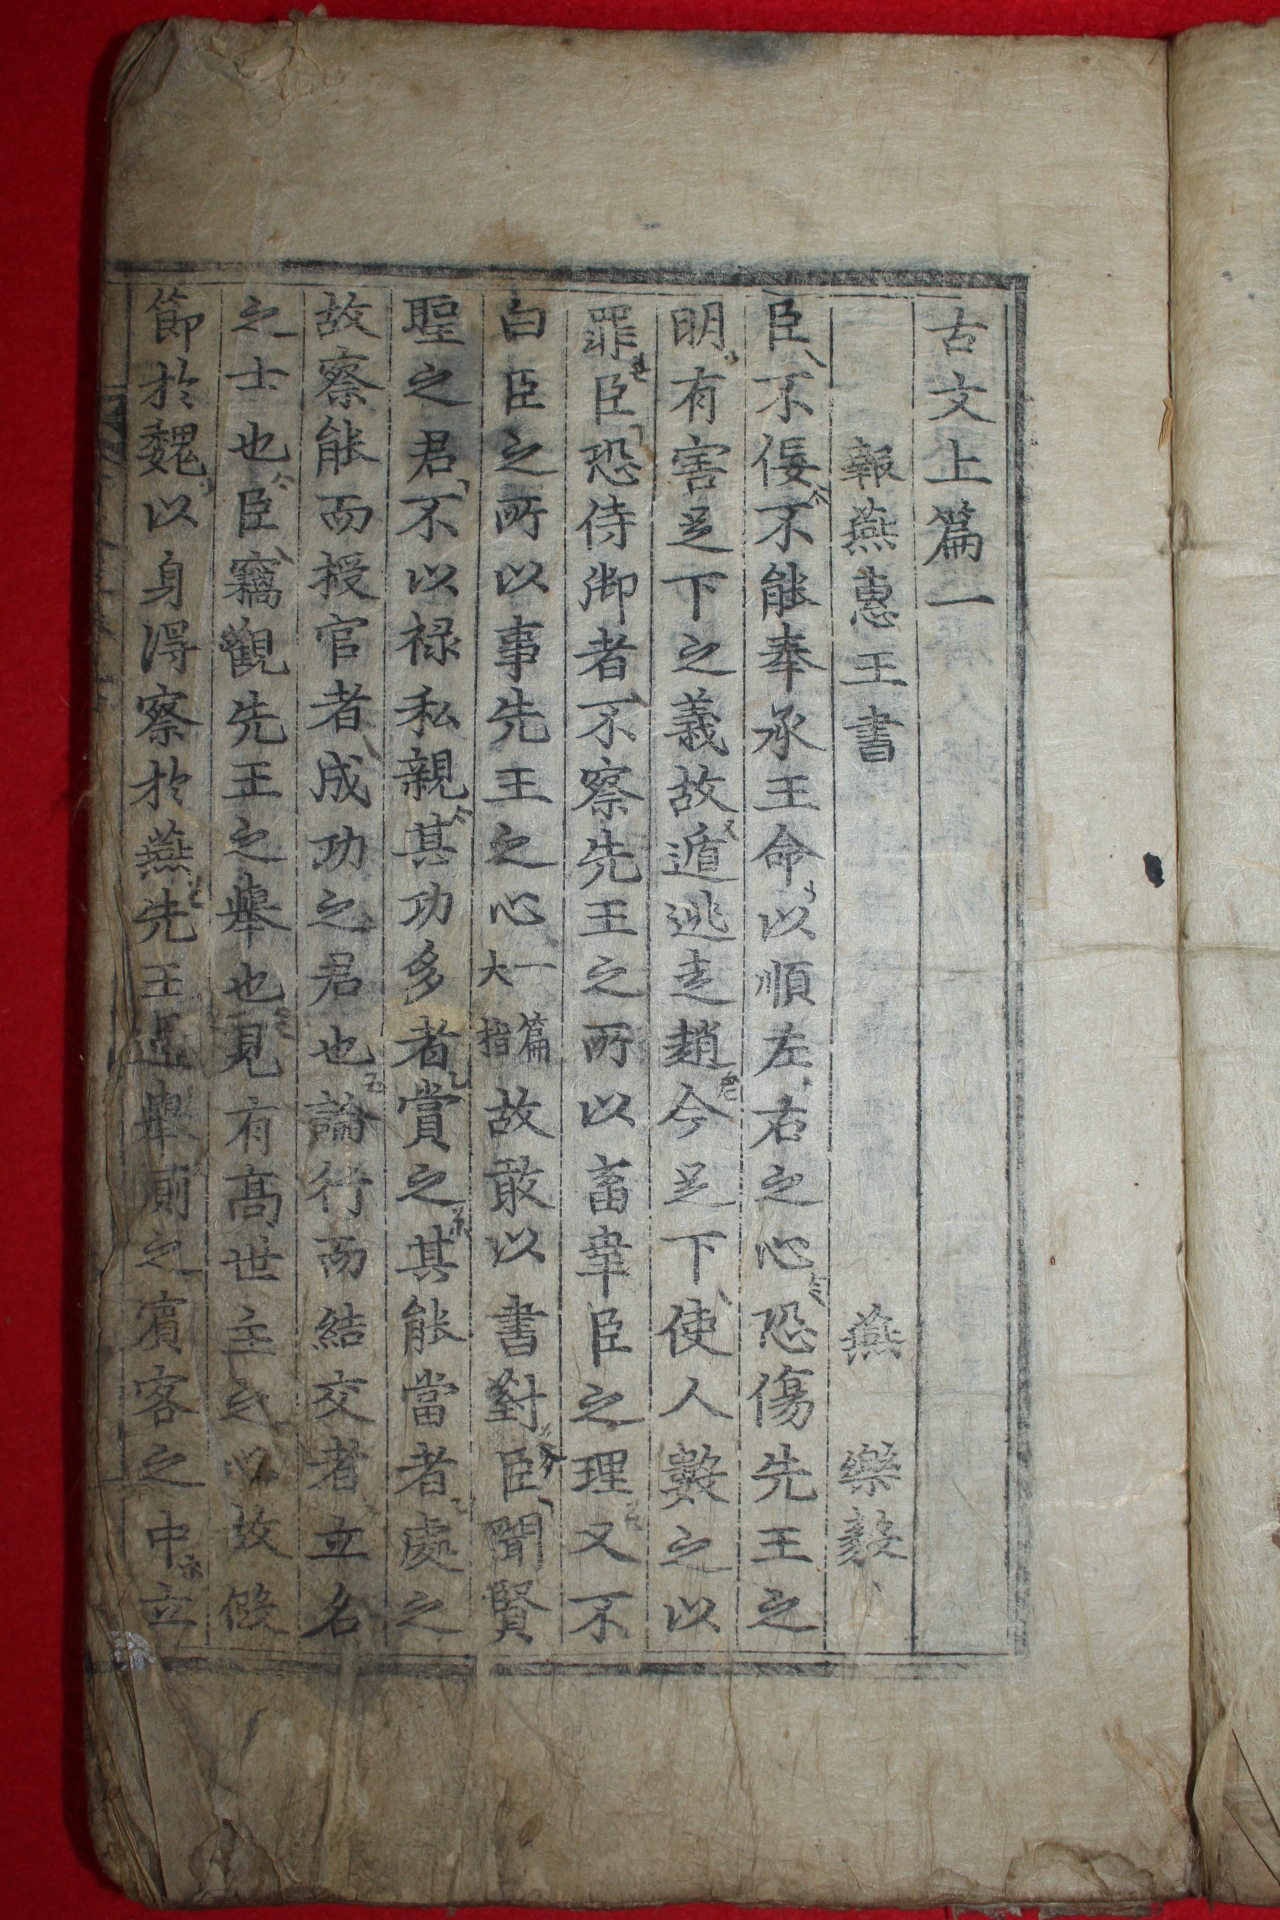 古文上篇一
報燕惠王書 燕 樂毅
臣不佞不能奉承王命以順左右之心恐傷先王之
明有害足下之義故遁逃走趙今足下使人數之以
罪臣恐侍御者不察先王之所以畜幸臣之理又不
白臣之所以事先王之心一篇大指故敢以書對臣聞賢
聖之君不以祿私親其功多者賞之其能當者處之
故察能而授官者成功之君也論行而結交者立名
之士也臣竊觀先王之舉也見有高世主之心故假
節於魏以身得察於燕先王過舉廁之賓客之中立